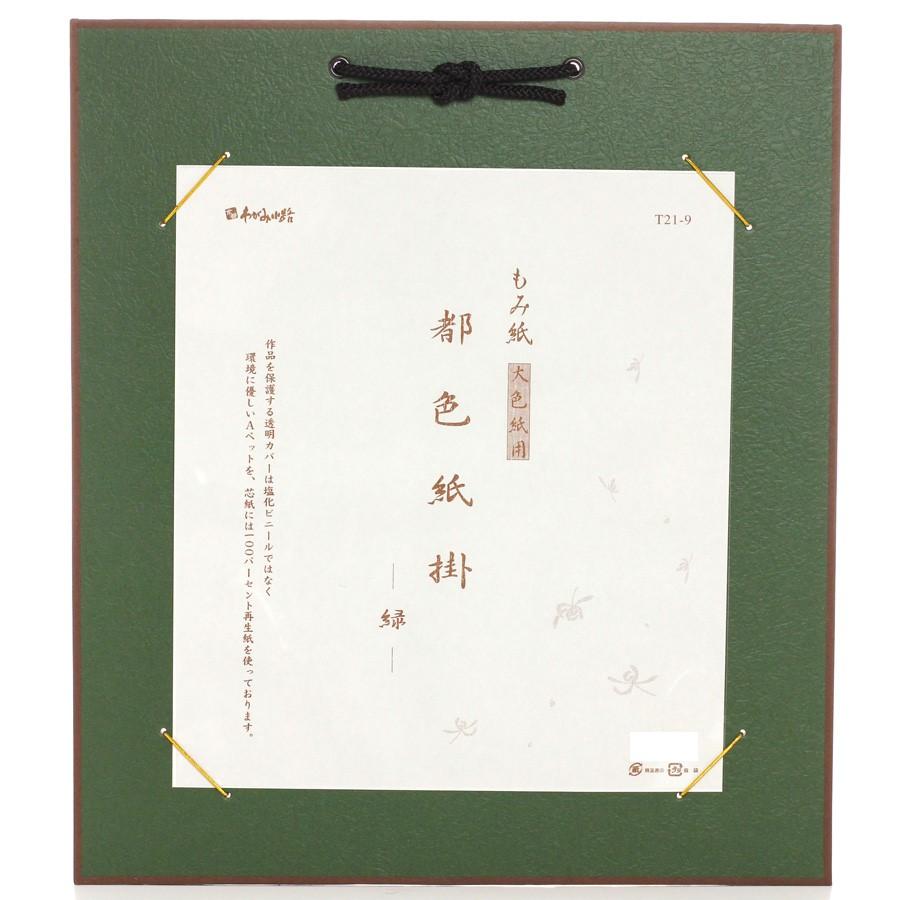 わがみ小路
T21-9
もみ紙
大色紙用
都色紙掛
緑
作品を保護する透明カバーは塩化ビニールではなく
環境に優しいAペットを、芯紙には100パーセント再生紙を使っております。
紙
プラ